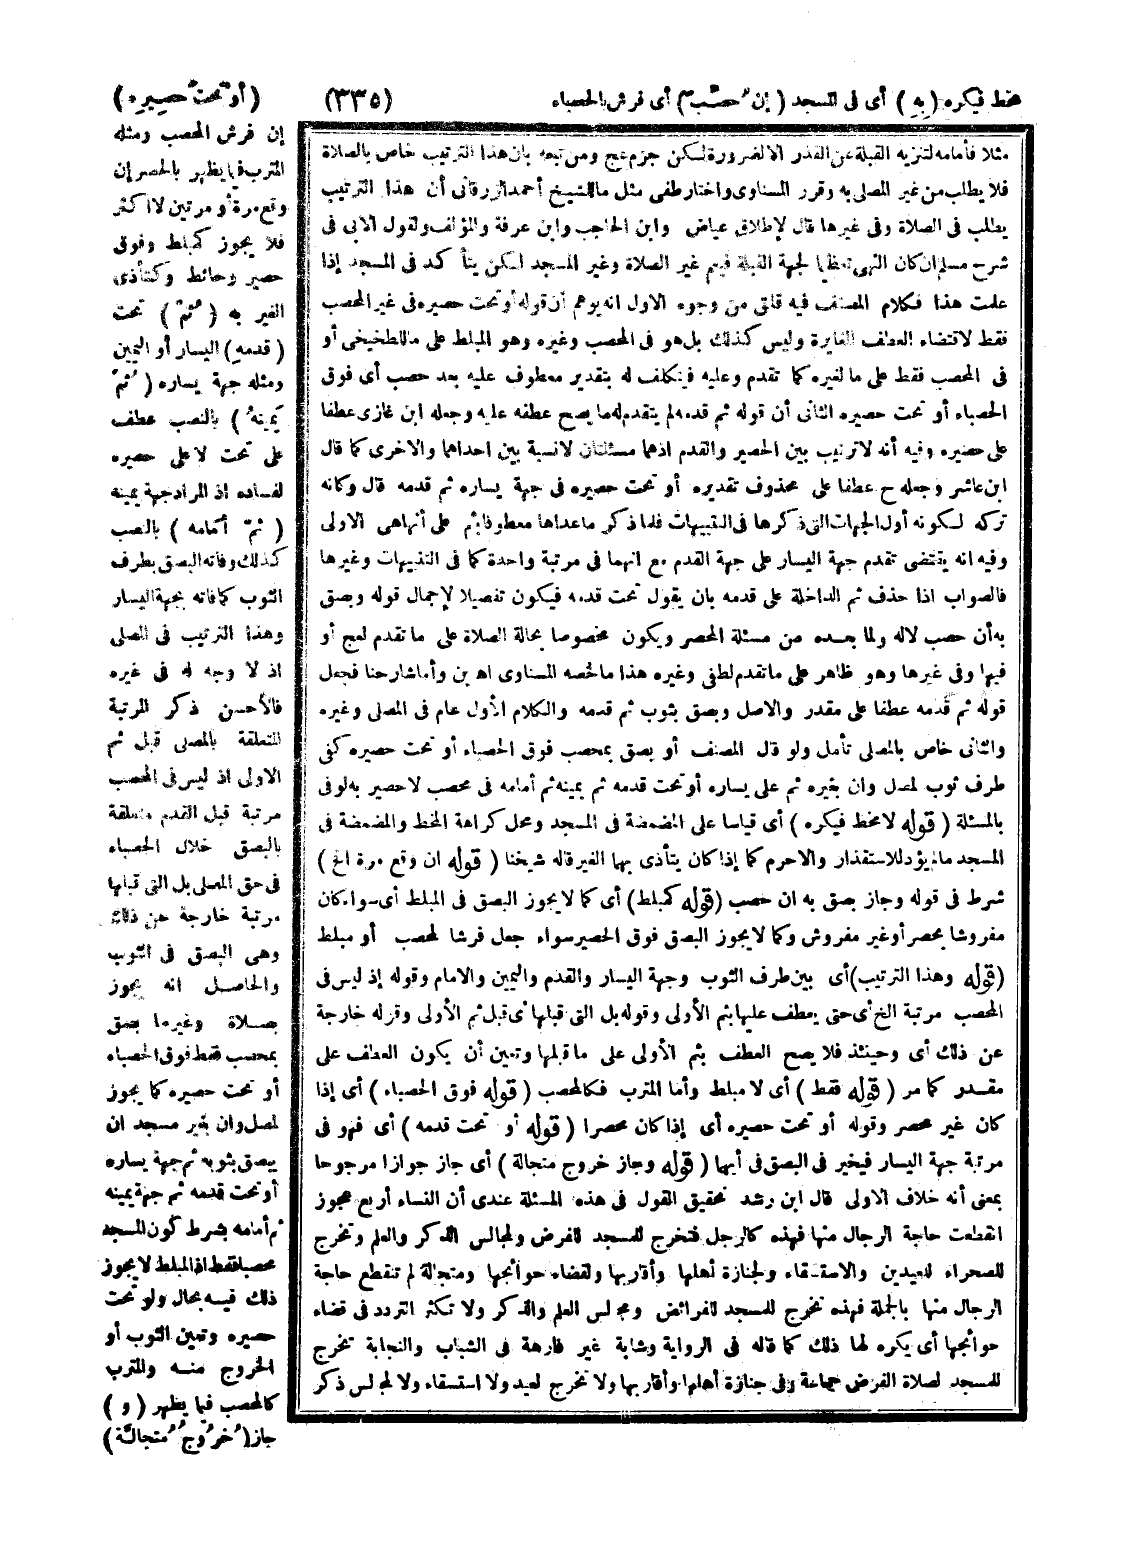 مخط فيكره (به) أى فى المسجد (إن حصب) أى فرش بالحصباء (٣٣٥) (أو تحت حصيره)
إن فرش المحصب ومثله
المترب فيما يظهر بالحصر إن
وقع مرة أو مرتين لا أكثر
فلا يجوز كمبلط وفوق
حصير وحائط وكتأذى
الغير به (ثم) تحت
(قدمه) اليسار أو اليمين
ومثله جهة يساره (ثم
يمينه) بالنصب عطف
على تحت لا على حصيره
لفساده اذ المراد جهة يمينه
(ثم أمامه) بالنصب
كذلك وفاته البصق بطرف
الثوب كما فاته بجهة اليسار
وهذا الترتيب فى المصلى
اذ لا وجه له فى غيره
فالأحسن ذكر المرتبة
المتعلقة بالمصلى قبل ثم
الاولى اذ ليس فى المحصب
مرتبة قبل القدم متعلقة
بالبصق خلال الحصباء
فى حق المصلى بل التى قبلها
مرتبة خارجة عن ذلك
وهى البصق فى الثوب
والحاصل انه يجوز
بصلاة وغيرها بصق
بمحصب فقط فوق الحصباء
أو تحت حصيره كما يجوز
لمصل وان بغير مسجد ان
يبصق بثوبه ثم جهة يساره
أو تحت قدمه ثم جهة يمينه
ثم أمامه بشرط كون المسجد
محصبا فقط اذ المبلط لا يجوز
ذلك فيه بحال ولو تحت
حصيره وتعين الثوب أو
الخروج منه والمترب
كالمحصب فيما يظهر (و)
جاز (خروج متجالة)
مثلا فأمامه لتنزيه القبلة عن القذر الا لضرورة لكن جزم عج ومن تبعه بان هذا الترتيب خاص بالصلاة
فلا يطلب من غير المصلى به وقرر المسناوى واختار طفى مثل ما للشيخ أحمد الزرقانى أن هذا الترتيب
يطلب فى الصلاة وفى غيرها قال لإطلاق عياض وابن الحاجب وابن عرفة والمؤلف ولقول الابى فى
شرح مسلم ان كان النهى تعظيما لجهة القبلة فيعم غير الصلاة وغير المسجد لكن يتأكد فى المسجد إذا
علمت هذا فكلام المصنف فيه قلق من وجوه الاول انه يوهم أن قوله أو تحت حصيره فى غير المحصب
فقط لاقتضاء العطف المغايرة وليس كذلك بل هو فى المحصب وغيره وهو المبلط على ما للطخيخى أو
فى المحصب فقط على ما لغيره كما تقدم وعليه فيتكلف له بتقدير معطوف عليه بعد حصب أى فوق
الحصباء أو تحت حصيره الثانى أن قوله ثم قدمه لم يتقدم له ما يصح عطفه عليه وجعله ابن غازى عطفا
على حصيره وفيه أنه لا ترتيب بين الحصير والقدم اذ هما مسئلتان لا نسبة بين احداهما والاخرى كما قال
ابن عاشر وجعله ح عطفا على محذوف تقديره أو تحت حصيره فى جهة يساره ثم قدمه قال وكانه
تركه لكونه أول الجهات التى ذكرها فى التنبيهات فلما ذكر ما عداها معطوفا بثم على أنها هى الاولى
وفيه انه يقتضى تقدم جهة اليسار على جهة القدم مع انهما فى مرتبة واحدة كما فى التنبيهات وغيرها
فالصواب اذا حذف ثم الداخلة على قدمه بان يقول تحت قدمه فيكون تفصيلا لإجمال قوله وبصق
به أن حصب لا له ولما بعده من مسئلة المحصر ويكون مخصوصا بحالة الصلاة على ما تقدم لعج أو
فيها وفى غيرها وهو ظاهر على ما تقدم لطفى وغيره هذا ما لخصه المسناوى اه بن وأما شارحنا فجعل
قوله ثم قدمه عطفا على مقدر والاصل وبصق بثوب ثم قدمه والكلام الأول عام فى المصلى وغيره
والثانى خاص بالمصلى تأمل ولو قال المصنف أو بصق بمحصب فوق الحصباء أو تحت حصيره كفى
طرف ثوب لمصل وان بغيره ثم على يساره أو تحت قدمه ثم يمينه ثم أمامه فى محصب لا حصير به لوفى
بالمسئلة (قوله لا مخط فيكره) أى قياسا على المضمضة فى المسجد ومحل كراهة المخط والمضمضة فى
المسجد ما لم يؤد للاستقذار والاحرم كما إذا كان يتأذى بها الغير قاله شيخنا (قوله ان وقع مرة الخ)
شرط فى قوله وجاز بصق به ان حصب (قوله كمبلط) أى كما لا يجوز البصق فى المبلط أى سواء كان
مفروشا بحصر أو غير مفروش وكما لا يجوز البصق فوق الحصير سواء جعل فرشا لمحصب أو مبلط
(قوله وهذا الترتيب) أى بين طرف الثوب وجهة اليسار والقدم واليمين والامام وقوله إذ ليس فى
المحصب مرتبة الخ أى حتى يعطف عليها بثم الأولى وقوله بل التى قبلها أى قبل ثم الأولى وقوله خارجة
عن ذلك أى وحينئذ فلا يصح العطف بثم الأولى على ما قبلها وتعين أن يكون العطف على
مقدر كما مر (قوله فقط) أى لا مبلط وأما المترب فكالمحصب (قوله فوق الحصباء) أى إذا
كان غير محصر وقوله أو تحت حصيره أى إذا كان محصرا (قوله أو تحت قدمه) أى فهو فى
مرتبة جهة اليسار فيخير فى البصق فى أيها (قوله وجاز خروج متجالة) أى جاز جوازا مرجوحا
بمعنى أنه خلاف الاولى قال ابن رشد تحقيق القول فى هذه المسئلة عندى أن النساء أربع عجوز
انقطعت حاجة الرجال منها فهذه كالرجل فتخرج للمسجد للفرض ولمجالس الذكر والعلم وتخرج
للصحراء للعيدين والاستسقاء ولجنازة أهلها وأقاربها ولقضاء حوائجها ومتجالة لم تنقطع حاجة
الرجال منها بالجملة فهذه تخرج للمسجد للفرائض ومجالس العلم والذكر ولا تكثر التردد فى قضاء
حوائجها أى يكره لها ذلك كما قاله فى الرواية وشابة غير فارهة فى الشباب والنجابة تخرج
للمسجد لصلاة الفرض جماعة وفى جنازة أهلها وأقاربها ولا تخرج لعيد ولا استسقاء ولا لمجالس ذكر